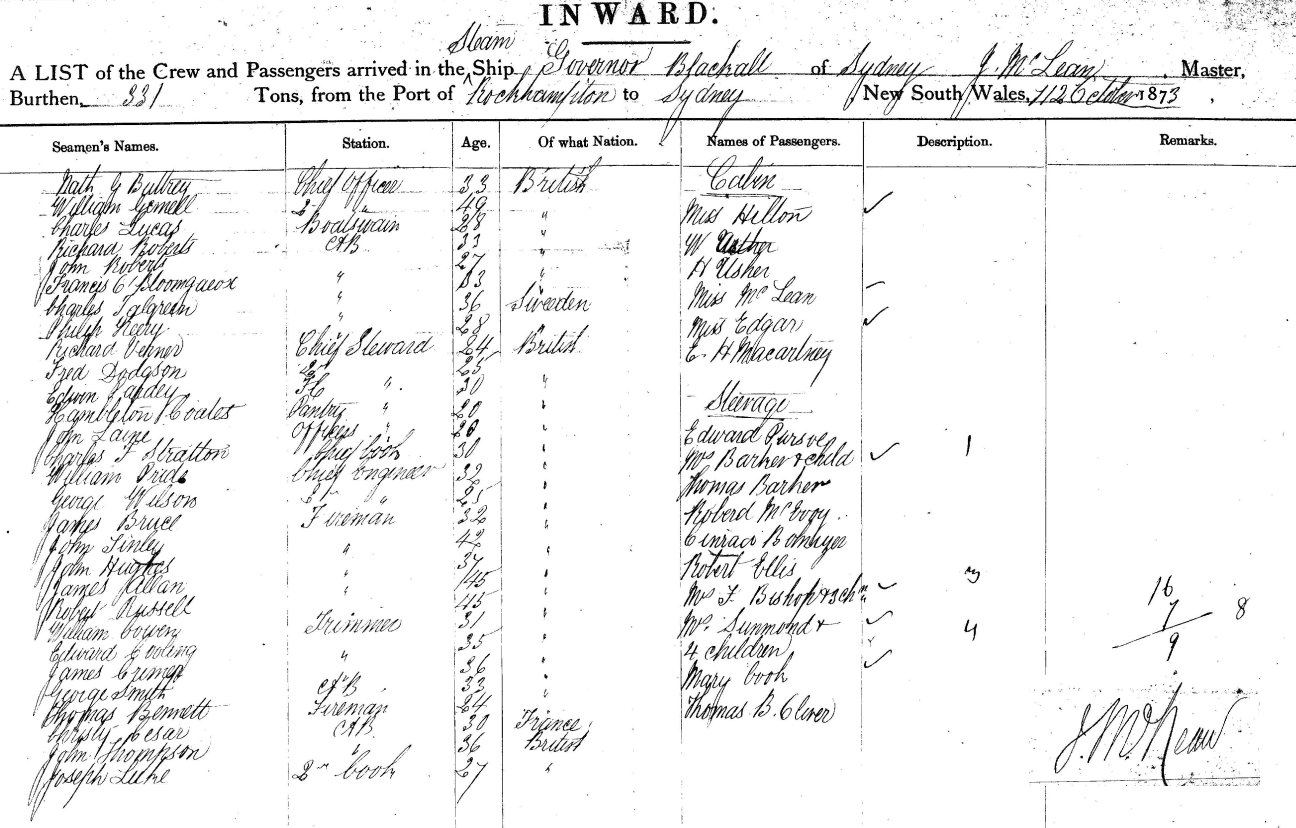 INWARD.
Steam
A LIST of the Crew and Passengers arrived in the Ship Governor Blackall of Sydney J. McLean, Master,
Burthen, 331 Tons, from the Port of Rockhampton to Sydney, New South Wales, 11 October 1873
Seamen's Names. Station. Age. Of what Nation. Names of Passengers. Description. Remarks.
Nath G Chief Officer 33 British Cabin
William Gemell 2 " 49
Charles Lucas Boatswain 28 " Miss Hilton ✓
Richard Roberts AB 33 " W
John Roberts 27 " H Usher
Francis " 33 "
Charles Talgreen " 36 Sweden Miss McLean –
Philip Neery " 28 " Miss Edgar ✓
Richard Venner Chief Steward 24 British E. H Macartney
Fred Dodgson 2 25
Edwin " 30 "
Hambleton Coales Pantry " 20 " Steerage
John Laine Officers " 20 "
Charles F Stratton Chief Cook 30 " Edward Pursove
William Pride Chief Engineer 32 " Mrs Barker & child ✓ 1
George Wilson 2 " 25 " Thomas Barker
James Bruce Fireman 32 " Roberd McEvoy.
John Tinley " 42 "
John Hughes " 37 " Robert Ellis
James Allan " 45 " Mrs F. Bishop & 3 chn ✓ 3
Robert Russell " 45 " 16
William Cowen Trimmer 31 " Mrs. Sunmond & ✓ 4 7 8
Edward Cooling " 35 " 4 children 9
James 36 " Mary Cook ✓
George Smith AB 33 "
Thomas Bennett Fireman 24 " Thomas B. Oliver
Christy Cesar AB 30 France
John Thompson " 36 British J. McLean
Joseph Luke 2nd Cook 27 "